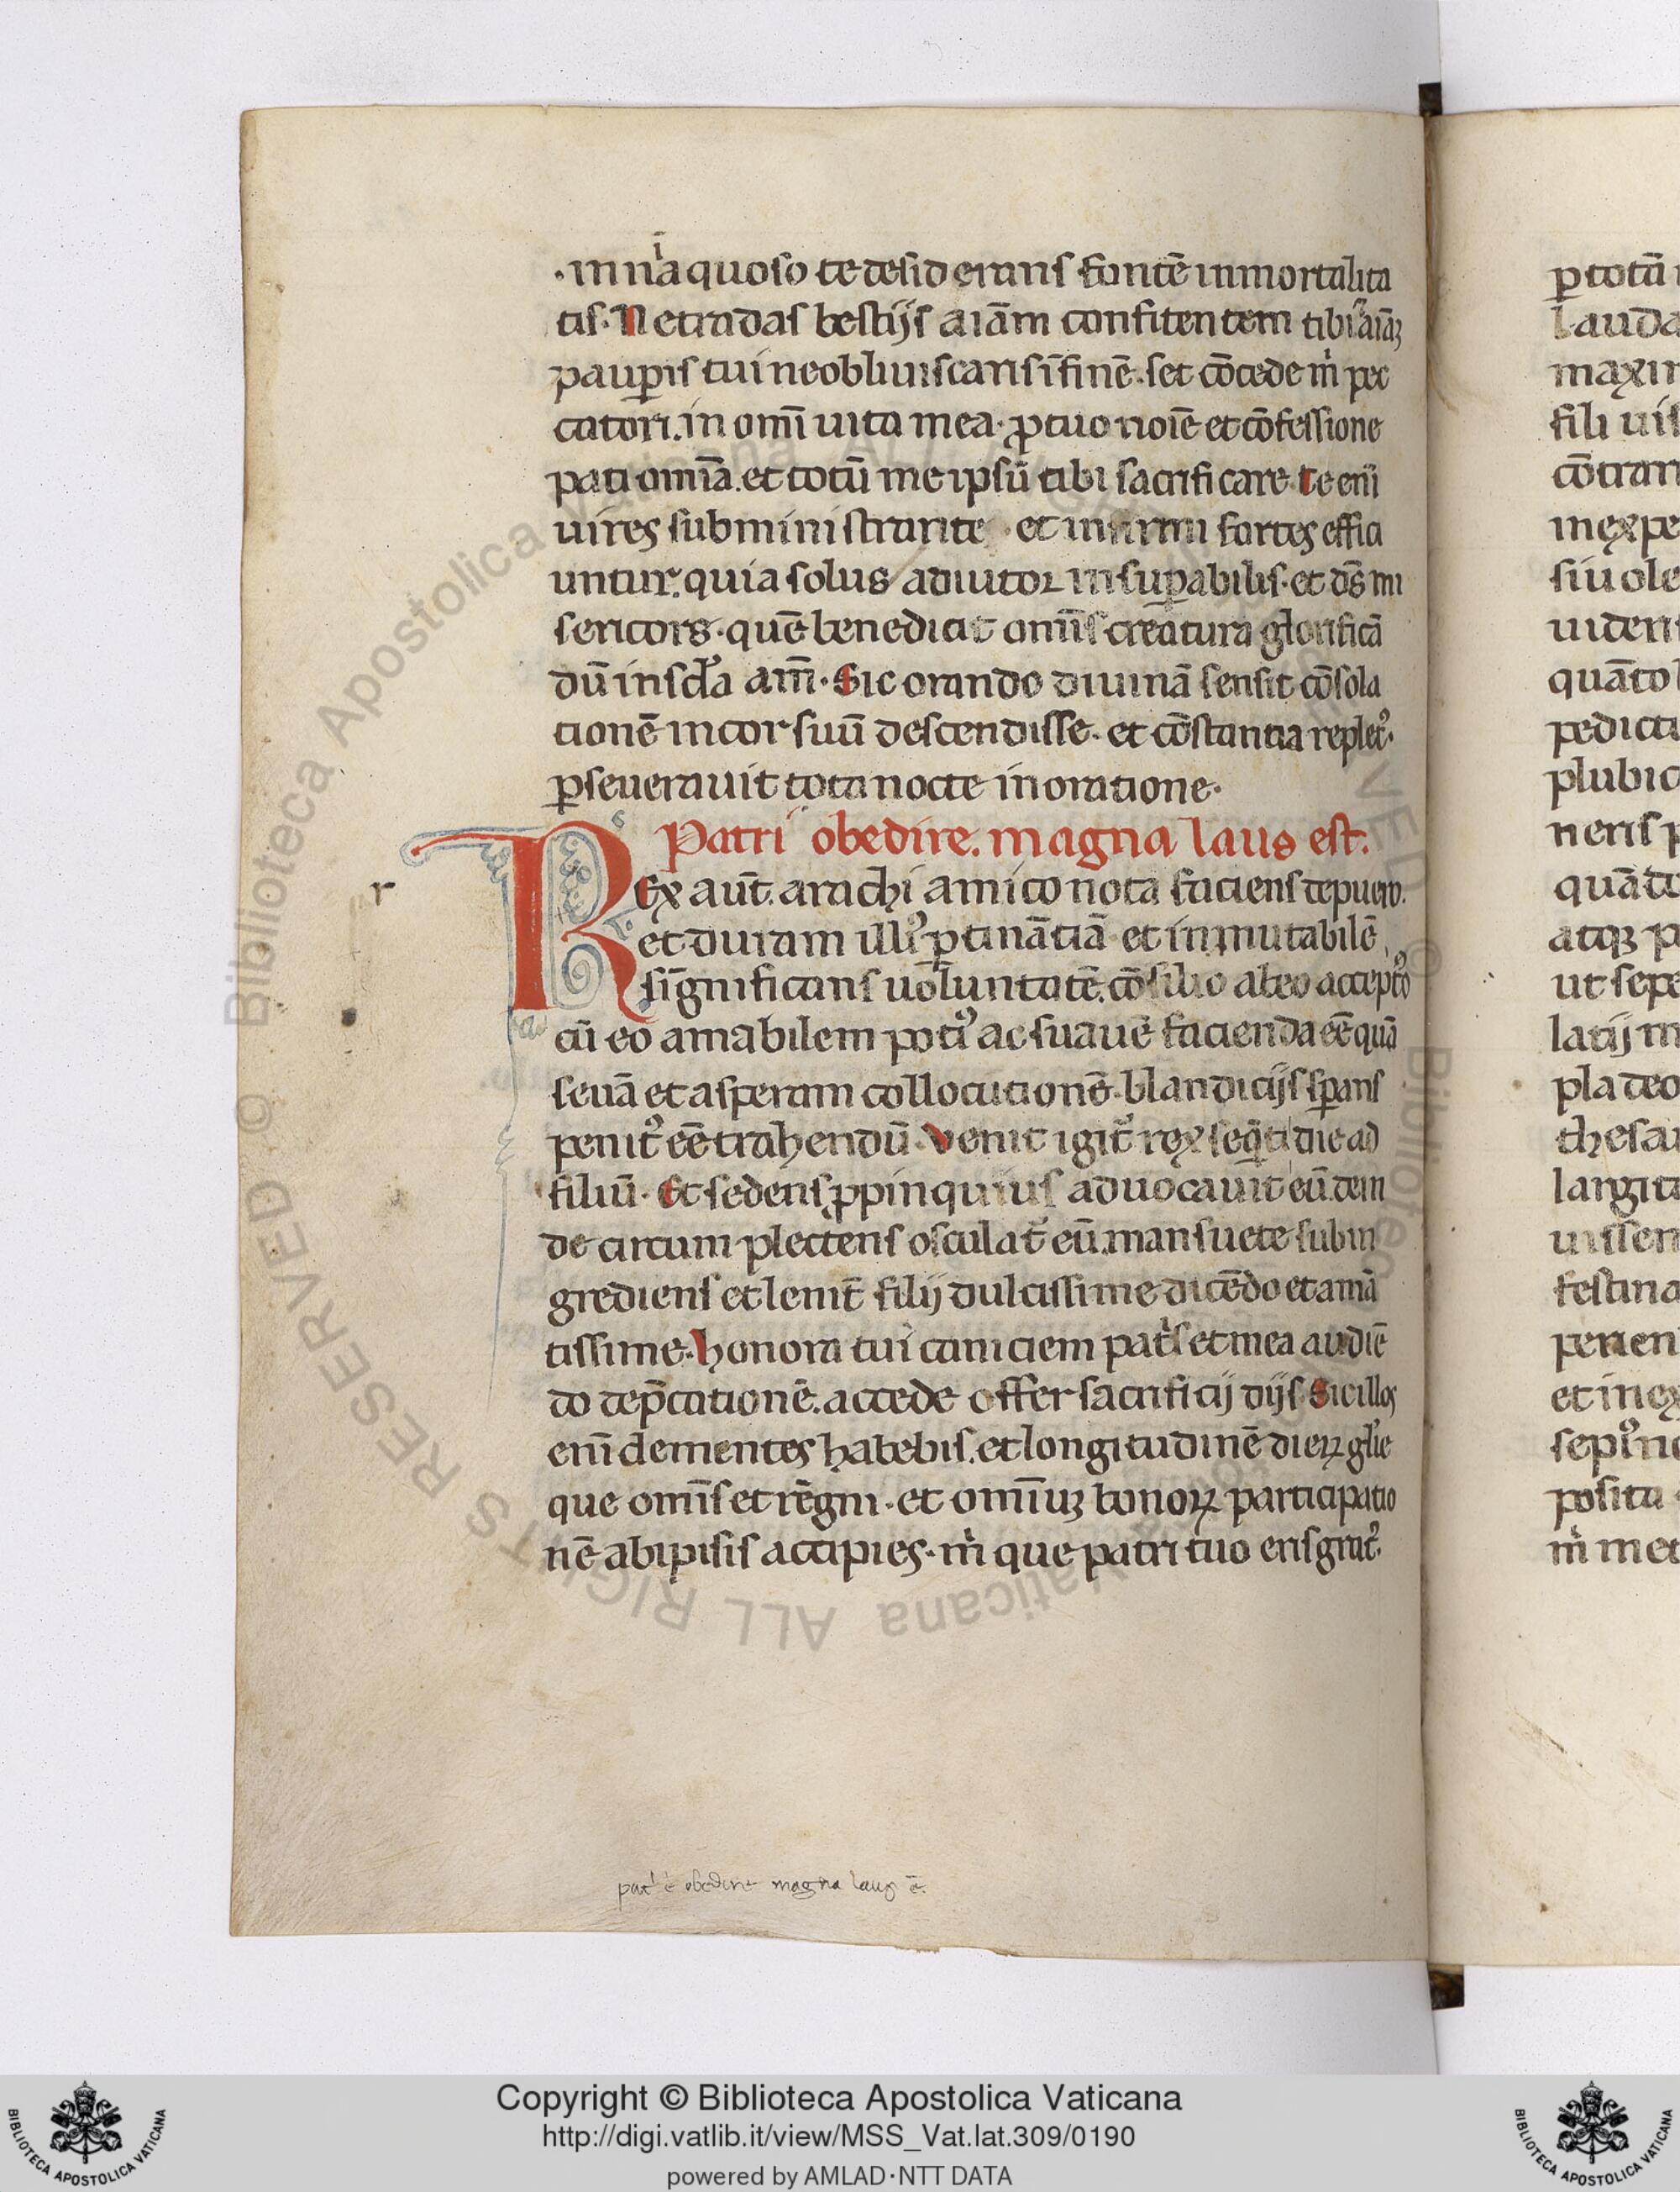 ·in uia quoso te desiderans fontē inmortalita
tis. Ne tradas bestijs aīam confitentem tibi aīaʒ
paup̱is tui ne obliuiscaris ī finē. set cōcede m̍ pec
catori. in omī uita mea. ꝓ tuo noīe et cōfessione
pati omīa. et totū me ipsū tibi sacrificare. te enī
uires subministrante et infirmi fortes effici
untur. quia solus adiutor insuꝑabilis. et d̄s mi
sericors. quē benedicit omīs creatura glorificā
dū in scl̄a am̄. Sic orando diuinā sensit cōsola
tionē in cor suū descendisse. et cōstantia replet᾿.
ꝑseuerauit tota nocte in oratione.
Patri obedire. magna laus est.
r
REx aut̄. arachi amico nota faciens de puero.
et duram illi᾿ ꝑtinātiā et inmutabilē
significans uoluntatē. cōsilio ab eo accepto
cū eo amabilem poti᾿ ac suauē facienda eē quā
seuā et asperam collocutionē. blandicijs sꝑans
penit᾿ eē trahendū. Venit igit̄ rex seq̄ti die ad
filiū. Et sedens ꝓpinquius aduocauit eū. dein
de circumplectens osculat̄ eū. mansuete subin
grediens et lenit̄ filij dulcissime dicēdo et amā
tissime. honora tui caniciem pat̍s et mea audiē
do dep̄cationē. accede offer sacrificij dijs. Sic illos
enī clementes habebis. et longitudinē dieꝝ gl̄ie
que omīs et regni. et omīuʒ bonoꝝ participatio
nē ab ipisis accipies. m̍ que patri tuo eris grat᾿.
pat̍ e obedire magna laus ē.
ꝑ totū
lauda
maxim
fili uis
cōtran
in expe
si uole
uiden
quāto
pedicti
plubic
neris p
quāto
atqʒ p
ut sepe
latij m
pla deo
thesau
largita
uissem
festina
perien
et inex
posita
m̍ met
Copyright © Biblioteca Apostolica Vaticana
http://digi.vatlib.it/view/MSS_Vat.lat.309/0190
powered by AMLAD·NTT DATA
BIBLIOTECA APOSTOLICA VATICANA
BIBLIOTECA APOSTOLICA VATICANA
© Biblioteca Apostolica Vaticana ALL RIGHTS RESERVED